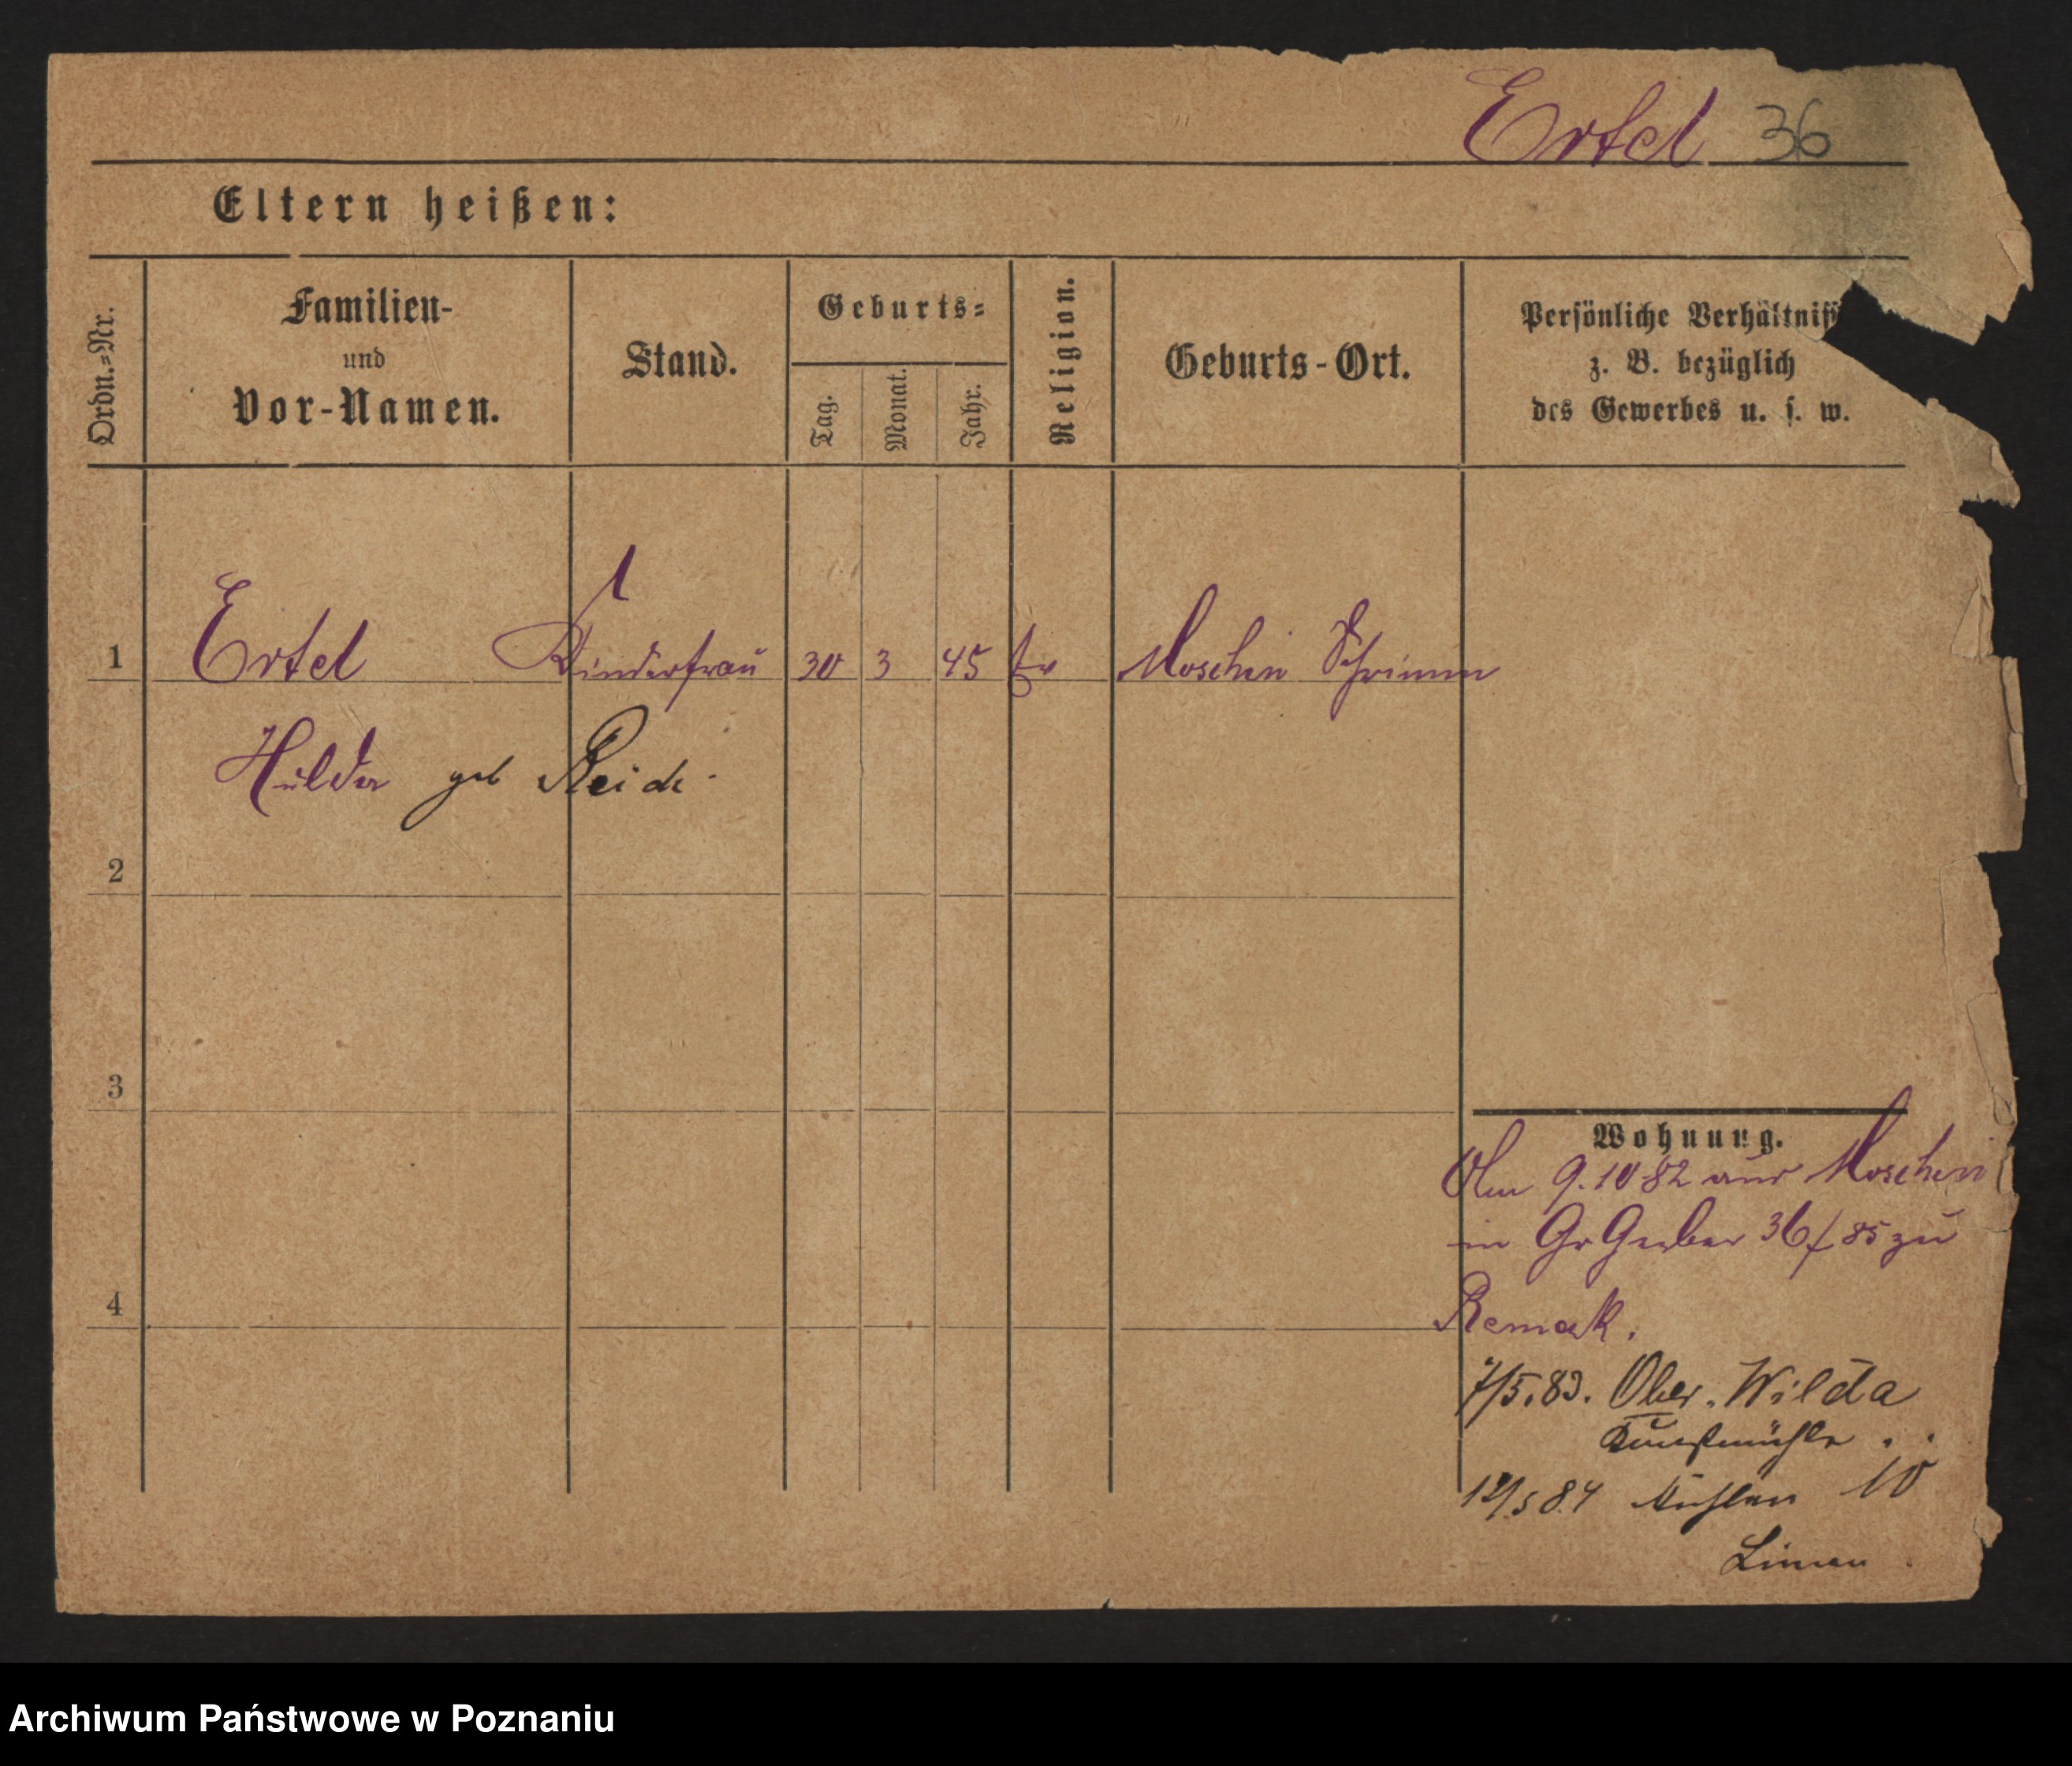 Ertel 36
Eltern heißen:
Ordn.=Nr.
Familien-
und
Vor-Namen.
Stand.
Geburts=
Tag.
Monat.
Jahr.
Religion.
Geburts-Ort.
Persönliche Verhältniss
z. B. bezüglich
des Gewerbes u. s. w.
1 Ertel Kinderfrau 30 3 45 Ev Moschin Schrimm
Hulda geb Reich
2
3
4
Wohnung.
Am 9.10 82 aus Moschin
in Gr Gerber 36/ 85 zu
Remak.
7/5.83. Ober-Wilda
Kunstmühle
12/5 84 Mühlen 10
Archiwum Państwowe w Poznaniu